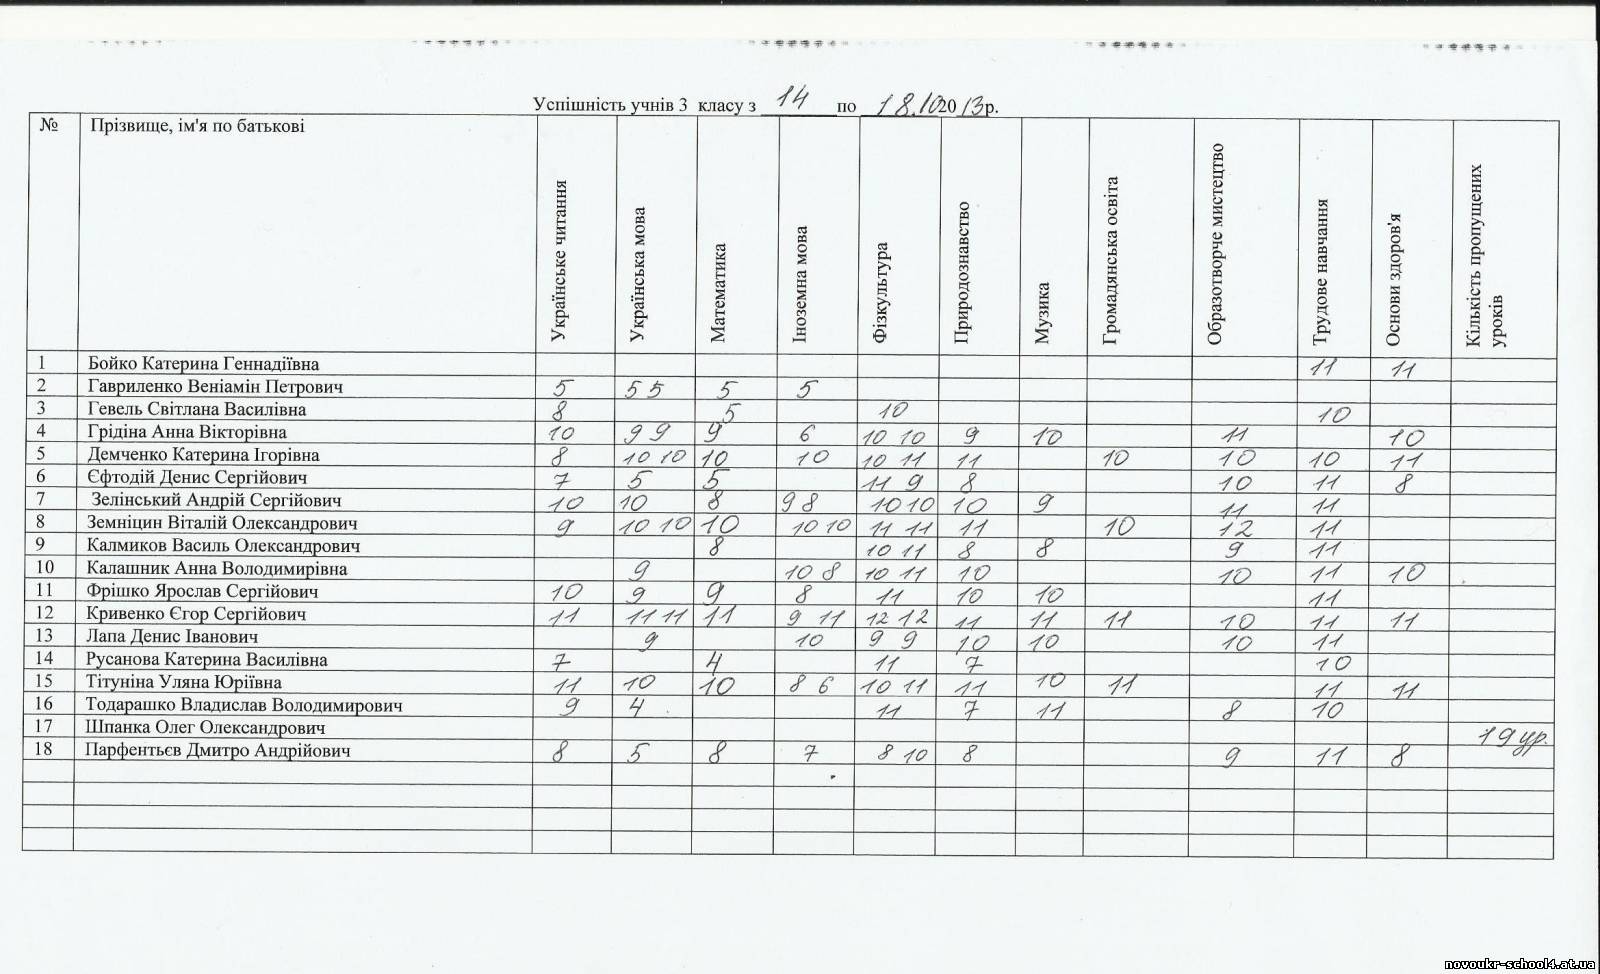 Успішність учнів 3 класу з 14 по 18.10 2013р.
№ Прізвище, ім'я по батькові Українське читання Українська мова Математика Іноземна мова Фізкультура Природознавство Музика Громадянська освіта Образотворче мистецтво Трудове навчання Основи здоров'я Кількість пропущених уроків
1 Бойко Катерина Геннадіївна 11 11
2 Гавриленко Веніамін Петрович 5 5 5 5 5
3 Гевель Світлана Василівна 8 5 10 10
4 Грідіна Анна Вікторівна 10 9 9 9 6 10 10 9 10 11 10
5 Демченко Катерина Ігорівна 8 10 10 10 10 10 11 11 10 10 10 11
6 Єфтодій Денис Сергійович 7 5 5 11 9 8 10 11 8
7 Зелінський Андрій Сергійович 10 10 8 9 8 10 10 10 9 11 11
8 Земніцин Віталій Олександрович 9 10 10 10 10 10 11 11 11 10 12 11
9 Калмиков Василь Олександрович 8 10 11 8 8 9 11
10 Калашник Анна Володимирівна 9 10 8 10 11 10 10 11 10
11 Фрішко Ярослав Сергійович 10 9 9 8 11 10 10 11
12 Кривенко Єгор Сергійович 11 11 11 11 9 11 12 12 11 11 11 10 11 11
13 Лапа Денис Іванович 9 10 9 9 10 10 10 11
14 Русанова Катерина Василівна 7 4 11 7 10
15 Тітуніна Уляна Юріївна 11 10 10 8 6 10 11 11 10 11 11 11
16 Тодарашко Владислав Володимирович 9 4 11 7 11 8 10
17 Шпанка Олег Олександрович 19 ур.
18 Парфентьєв Дмитро Андрійович 8 5 8 7 8 10 8 9 11 8
novoukr-school4.at.ua